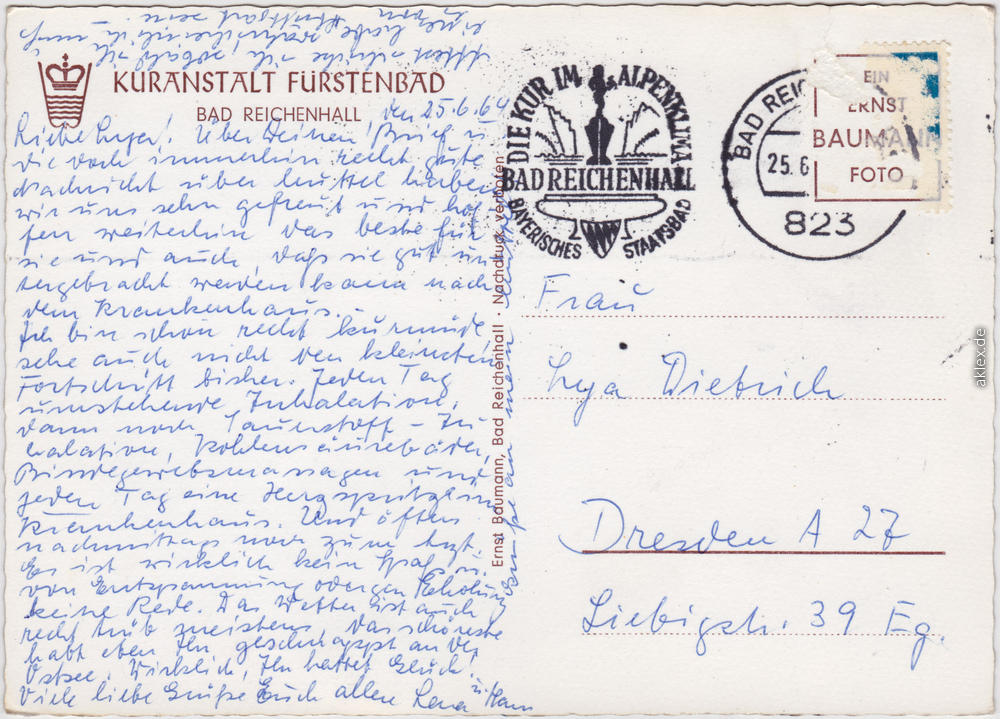 KURANSTALT FÜRSTENBAD
BAD REICHENHALL
den 25.6.64
Über Deinen Brief u.
die doch immerhin recht gute
Nachricht über haben
wir uns sehr gefreut und hof-
fen weiterhin das beste für
sie und auch, daß sie gut un-
tergebracht werden kann nach
dem Krankenhaus.-
Ich bin schon recht kurmüde,
sehe auch nicht den kleinsten
Fortschritt bisher. Jeden Tag
umstehende Inhalation,
dann noch Sauerstoff-In-
halation, Kohlensäurebäder,
Bindegewebsmassagen und
jeden Tag eine Herzspritze im
Krankenhaus. Und öfters
nachmittags noch zum Arzt.
Es ist wirklich kein Spaß u.
von Entspannung oder gar Erholung
keine Rede. Das Wetter ist auch
recht trüb meistens, das schönste
habt eben Ihr geschnappt an der
Ostsee. Wirklich, Ihr hattet Glück!
Viele liebe Grüße Euch allen Lena u. Hans
Ernst Baumann, Bad Reichenhall · Nachdruck verboten
DIE KUR IM ALPENKLIMA
BAD REICHENHALL
BAYERISCHES STAATSBAD
BAD REIC
25.6
823
EIN
ERNST
BAUMANN
FOTO
Frau
Lya Dietrich
Dresden A 27
Liebigstr. 39 Eg.
aklex.de